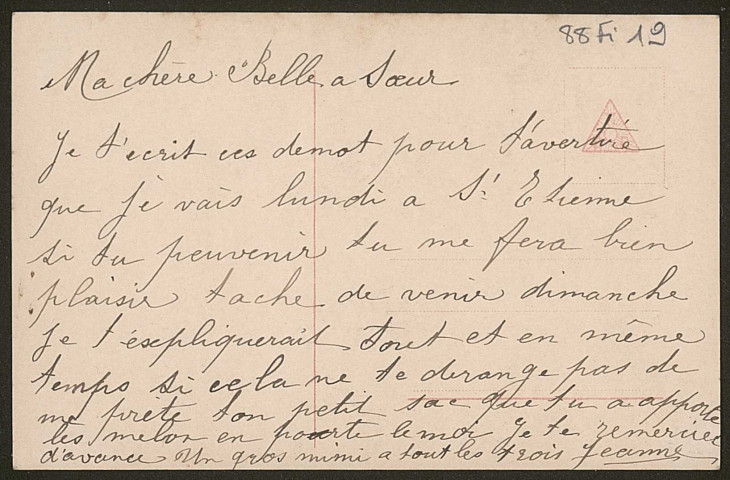 88 Fi 19
Ma chère Belle a Sœur
Je t'ecrit ces demot pour t'avertire
que je vais lundi a St Etienne
si tu peuvenir tu me fera bien
plaisir tache de venir dimanche
Je t'éxpliquerait Tout et en même
temps si cela ne te derange pas de
me prète ton petit sac que tu a apporte
les melon en porte le moi Je te remercier
d'avance Un gros mimi a tout les trois Jeanne